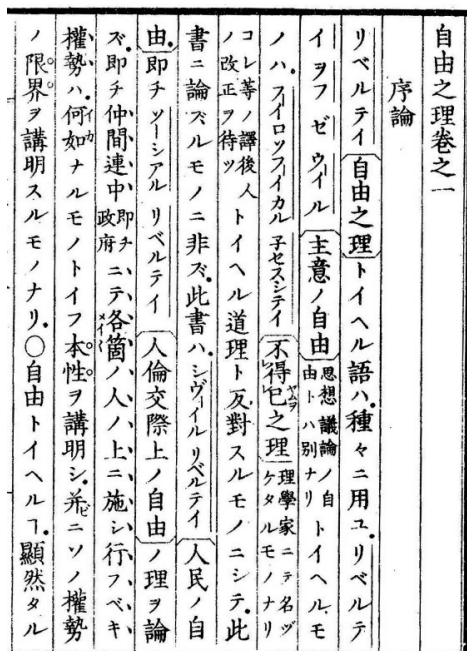 自由之理卷之一
序論
リベルテイ〔自由之理〕トイヘル語ハ。種々ニ用ユ。リベルテ
イ ヲフ ゼ ウイル〔主意ノ自由〕思想議論ノ自由トハ別ナリ トイヘルモ
ノハ。フイロソフイカル 子セスシテイ〔不得已之理〕理學家ニテ名ヅケタルモノナリ
コレ等ノ譯後人ノ改正ヲ待ツ トイヘル道理ト反對スルモノニシテ。此
書ニ論ズルモノニ非ズ。此書ハ。シヴィール リベルテイ〔人民ノ自
由。〕即チ ソーシアル リベルテイ〔人倫交際上ノ自由〕ノ理ヲ論
ズ。即チ仲間連中 即チ政府 ニテ各箇ノ人ノ上ニ施シ行フベキ
權勢ハ。何如ナルモノトイフ本性ヲ講明シ。并ニソノ權勢
ノ限界ヲ講明スルモノナリ。○自由トイヘルヿ。顯然タル